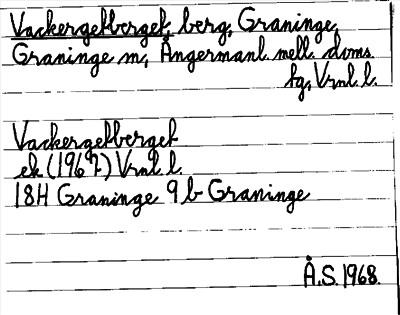 Vackergetberget, berg, Graninge,
Graninge sn, Ångermanl. mell. doms.
sg, Vrnl. l.
Vackergetberget
ek (1967) Vrnl. l.
18H Graninge 9 b Graninge
Å.S. 1968.